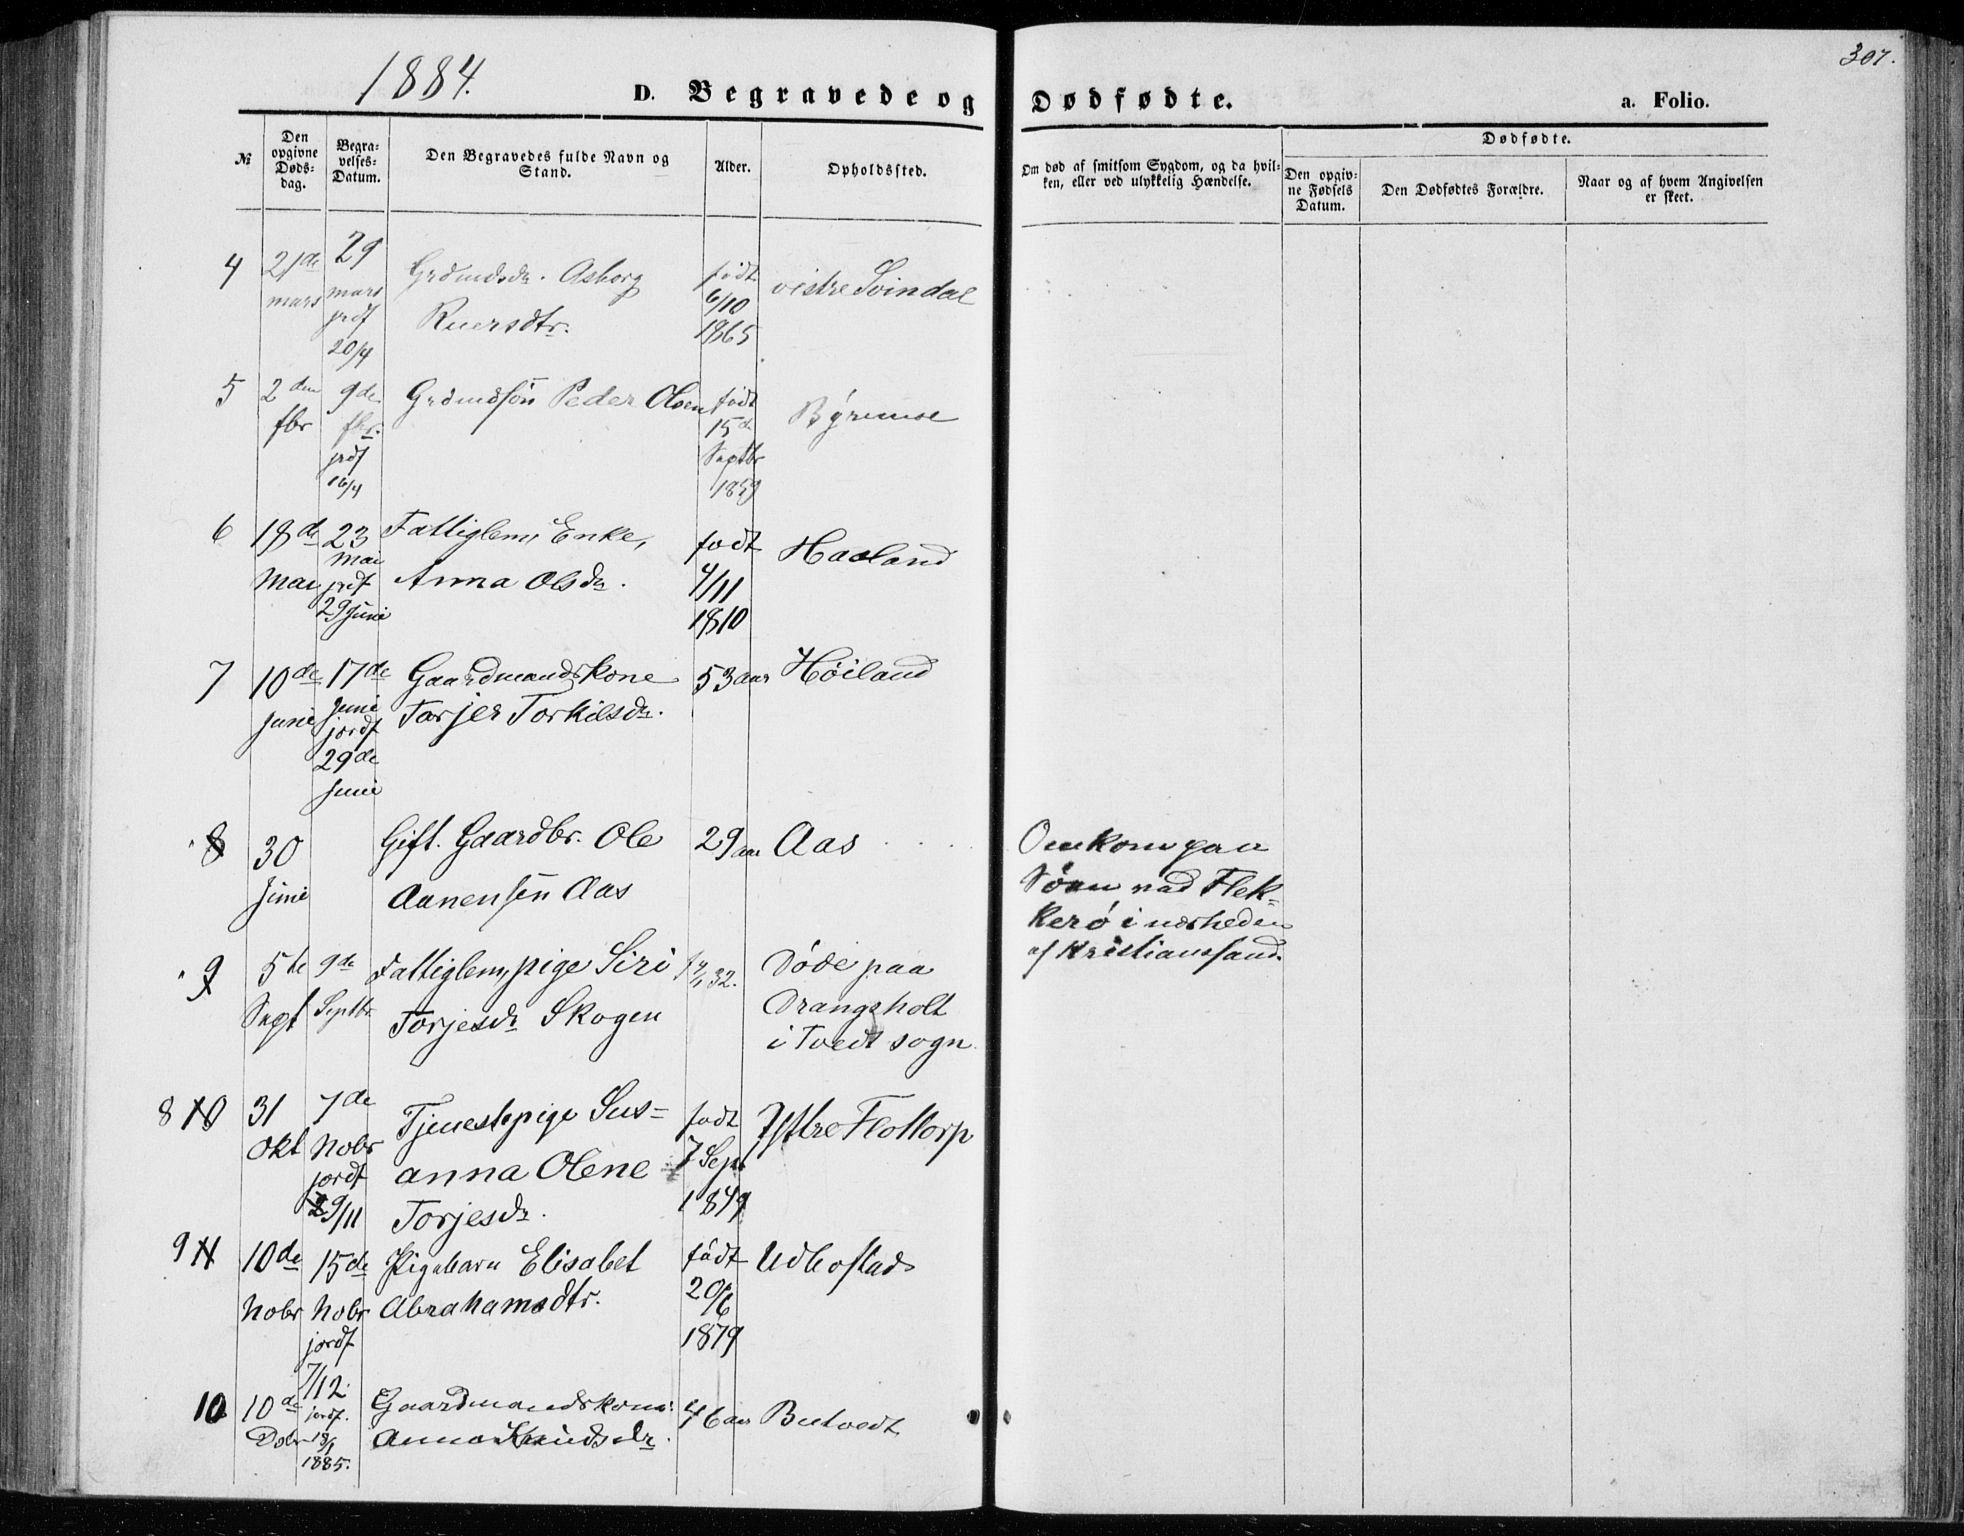 1884.
307.
D. Begravede og Dødfødte.
a. Folio.
№
Den opgivne Dødsdag.
Begravelses-Datum.
Den Begravedes fulde Navn og Stand.
Alder.
Opholdssted.
Om død af smitsom Sygdom, og da hvilken, eller ved ulykkelig Hændelse.
Dødfødte.
Den opgivne Fødsels Datum.
Den Dødfødtes Forældre.
Naar og af hvem Angivelsen er skeet.
4 21de mars 29 mars jrdf 20/4 Grdmdsdr. Asborg født 6/10 1865 vestre Svindal
5 2den fbr 9de fbr. jrdf 16/4 Grdmdsön Peder Olsen født 15de Septbr 1859
6 18de Mai 23 Mai jrdf 29 Juni Fattiglem, Enke, Anna Olsdr. født 4/11 1810 Haaland
7 10de Juni 17de Juni jordf 29de Juni Gaardmandskone Torkilsdr. 53 aar Høiland
8 30 Juni Gift. Gaardbr. Ole Aanensön Aas 29 aar Aas
Omkom paa
Söen ved Flek-
kerö i nærheden
af Kristianssand.
9 5te Sept 9de Septbr Fattiglem, pige Siri Torjesdr Skogen 32. Döde paa Drangsholt i Tvedt sogn
8 10 31 Okt 7de Nobr jordf 29/11 Tjenestepige Sus=
anna Olene
Torjesdr. født 7 Sept 1849 Flottorp
9 11 10de Nobr 15de Nobr jordf 7/12. Pigebarn Elisabet Abrahamsdtr. født 20/6 1879 Udbostad
10 10de Dcbr jordf. 18/1 1885. Gaardmandskone Anna Knudsdr. 46 aar Butvedt